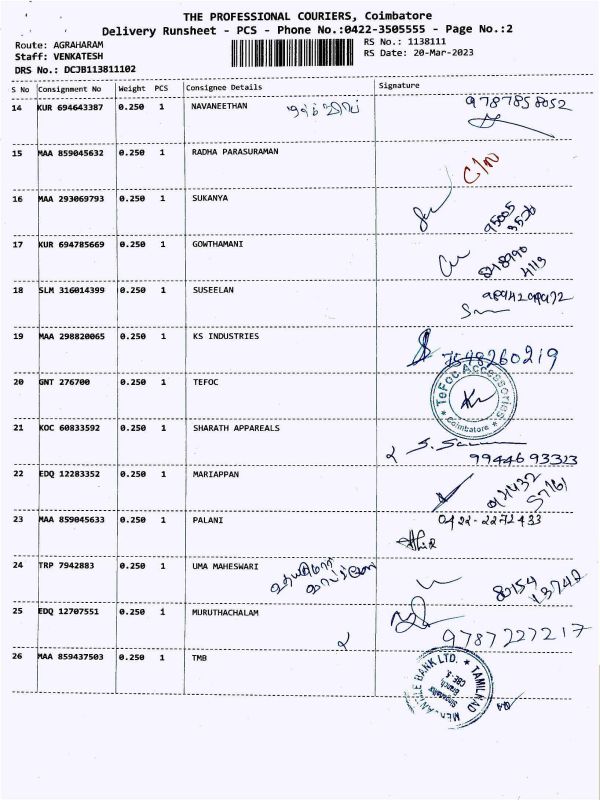 THE PROFESSIONAL COURIERS, Coimbatore
Delivery Runsheet - PCS - Phone No.:0422-3505555 - Page No.:2
Route: AGRAHARAM
RS No.: 1138111
Staff: VENKATESH
RS Date: 20-Mar-2023
DRS No.: DCJB113811102
S No Consignment No Weight PCS Consignee Details Signature
14 KUR 694643387 0.250 1 NAVANEETHAN 9787858052
15 MAA 859045632 0.250 1 RADHA PARASURAMAN C/N
16 MAA 293069793 0.250 1 SUKANYA
17 KUR 694785669 0.250 1 GOWTHAMANI
18 SLM 316014399 0.250 1 SUSEELAN
19 MAA 298820065 0.250 1 KS INDUSTRIES
20 GNT 276700 0.250 1 TEFOC
TeFoc Accessories
Coimbatore
21 KOC 60833592 0.250 1 SHARATH APPAREALS
9944693323
22 EDQ 12283352 0.250 1 MARIAPPAN
23 MAA 859045633 0.250 1 PALANI 0422-2272433
24 TRP 7942883 0.250 1 UMA MAHESWARI
80154
13742
25 EDQ 12707551 0.250 1 MURUTHACHALAM
9787227217
26 MAA 859437503 0.250 1 TMB
TAMILNAD MERCANTILE BANK LTD.